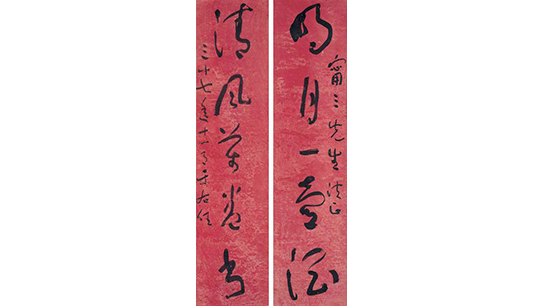 明月一壺酒
甯三先生法正
清風萬卷書
三十七年十一月于右任